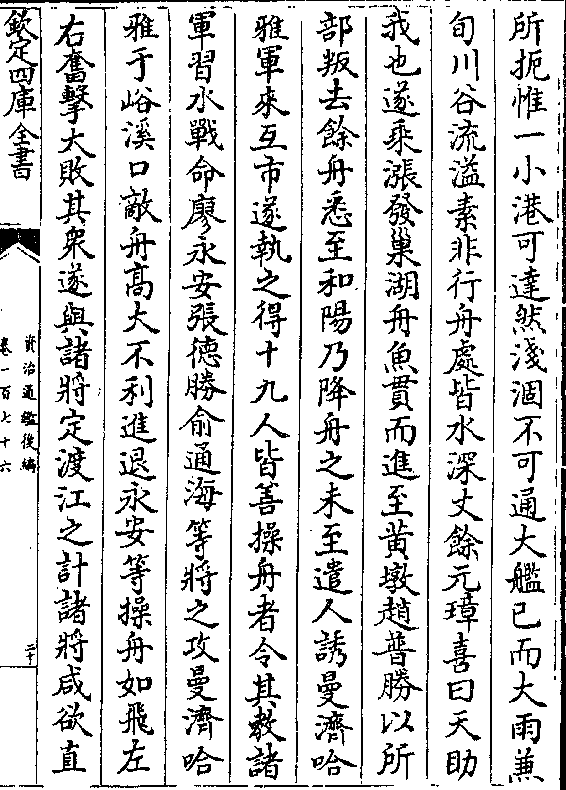 所扼惟一小港可達然淺涸不可通大艦已而大雨兼
旬川谷流溢素非行舟處皆水深丈餘元璋喜曰天助
我也遂乗漲發巢湖舟魚貫而進至黄墩趙普勝以所
部叛去餘舟悉至和陽乃降舟之未至遣人誘曼濟哈
雅軍來互市遂執之得十九人皆善操舟者令其教諸
軍習水戰命廖永安張德勝俞通海等將之攻曼濟哈
雅于峪溪口敵舟髙大不利進退永安等操舟如飛左
右奮擊大敗其衆遂與諸將定渡江之計諸將咸欲直
欽定四庫全書
資治通鑑後編
卷一百七十六
二十